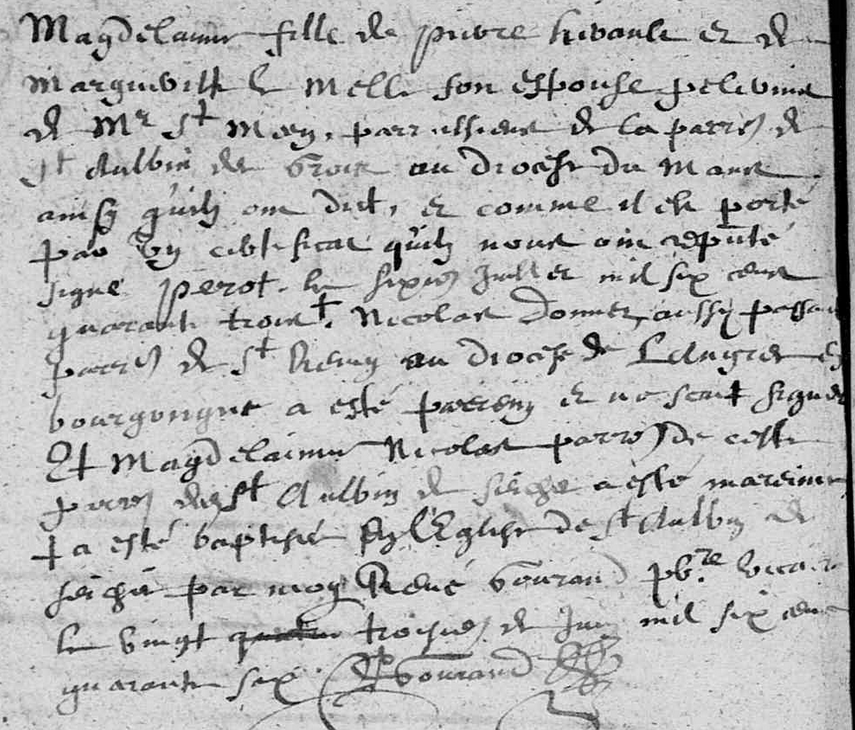 Magdelainne fille de pierre hivault et de
Margueritte le Melle son espouse pelerins
de Mr St Meen, parroissiens de la parr. de
St Aulbin de au diocese du Mans
ainsy quilz ont dict, et comme il est porté
par ung certificat quilz nous ont
signé perot. le sixie Juillet mil six cent
quarante trois †. Nicolas Donnet, aussy passant
parr. de St Remy au diocese de Langres en
bourgongne a esté parrein et ne scait signer
Et Magdelainne Nicolas parr. de ceste
parr. de St Aulbin de seiche a esté mareinne
† a esté baptisée En l'Eglise de St Aulbin de
seiche par moy René Gourand pbre vicaire
le vingt troysie de Juin mil six cent
quarante six. Gourand